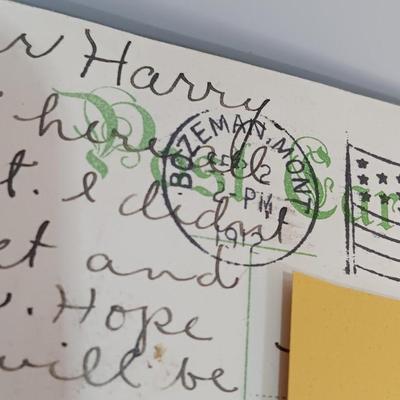 r Harry
here all
t. I didnt
et and
. Hope
will be
Post Car
BOZEMAN, MONT.
PM